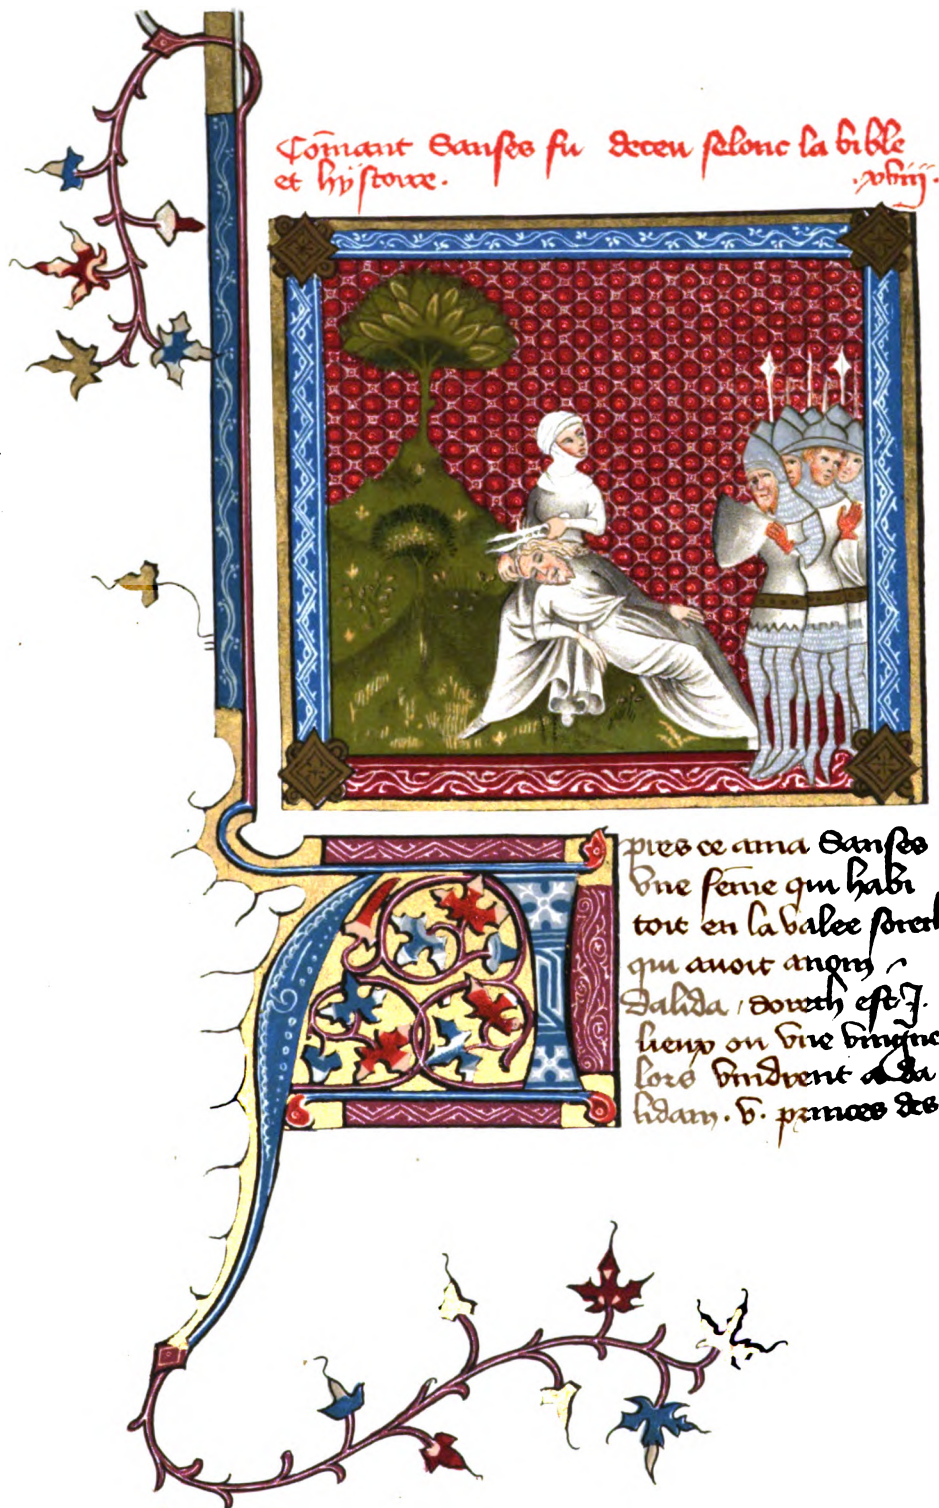 Cōmant Sanses fu deceu selonc la bible
et hÿstoire. .xviij.
Apres ce ama Sanses
vne fēme qui habi
toit en la valee soreth
qui auoit a nom
Dalida / soreth est .J.
lieux ou vne vingne
lors vindrent a da
lidam . v . princes des